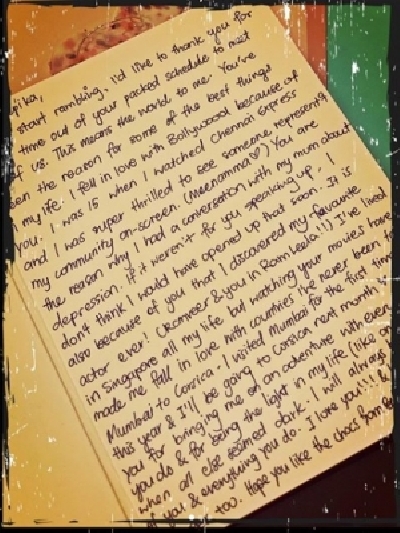 start rambling, I'd like to thank you for
time out of your packed schedule to meet
of us. This means the world to me. You're
the reason for some of the best things
my life. I fell in love with Bollywood because of
you. I was 15 when I watched Chennai Express
and I was super thrilled to see someone represent
my community on-screen. (Meenamma ♡) You are
the reason why I had a conversation with my mum about
depression. If it weren't for you speaking up - I
don't think I would have opened up that soon. It is
also because of you that I discovered my favourite
actor ever! (Ranveer & you in Ram Leela!!) I've lived
in Singapore all my life but watching your movies have
made me fall in love with countries I've never been to
Mumbai to Corsica. I visited Mumbai for the first time
this year & I'll be going to Corsica next month
you for bringing me on an adventure with
you do & for being the light in my life (like
when all else seemed dark. I will always
you & everything you do. I love you!!! &
too. Hope you like the chocs from